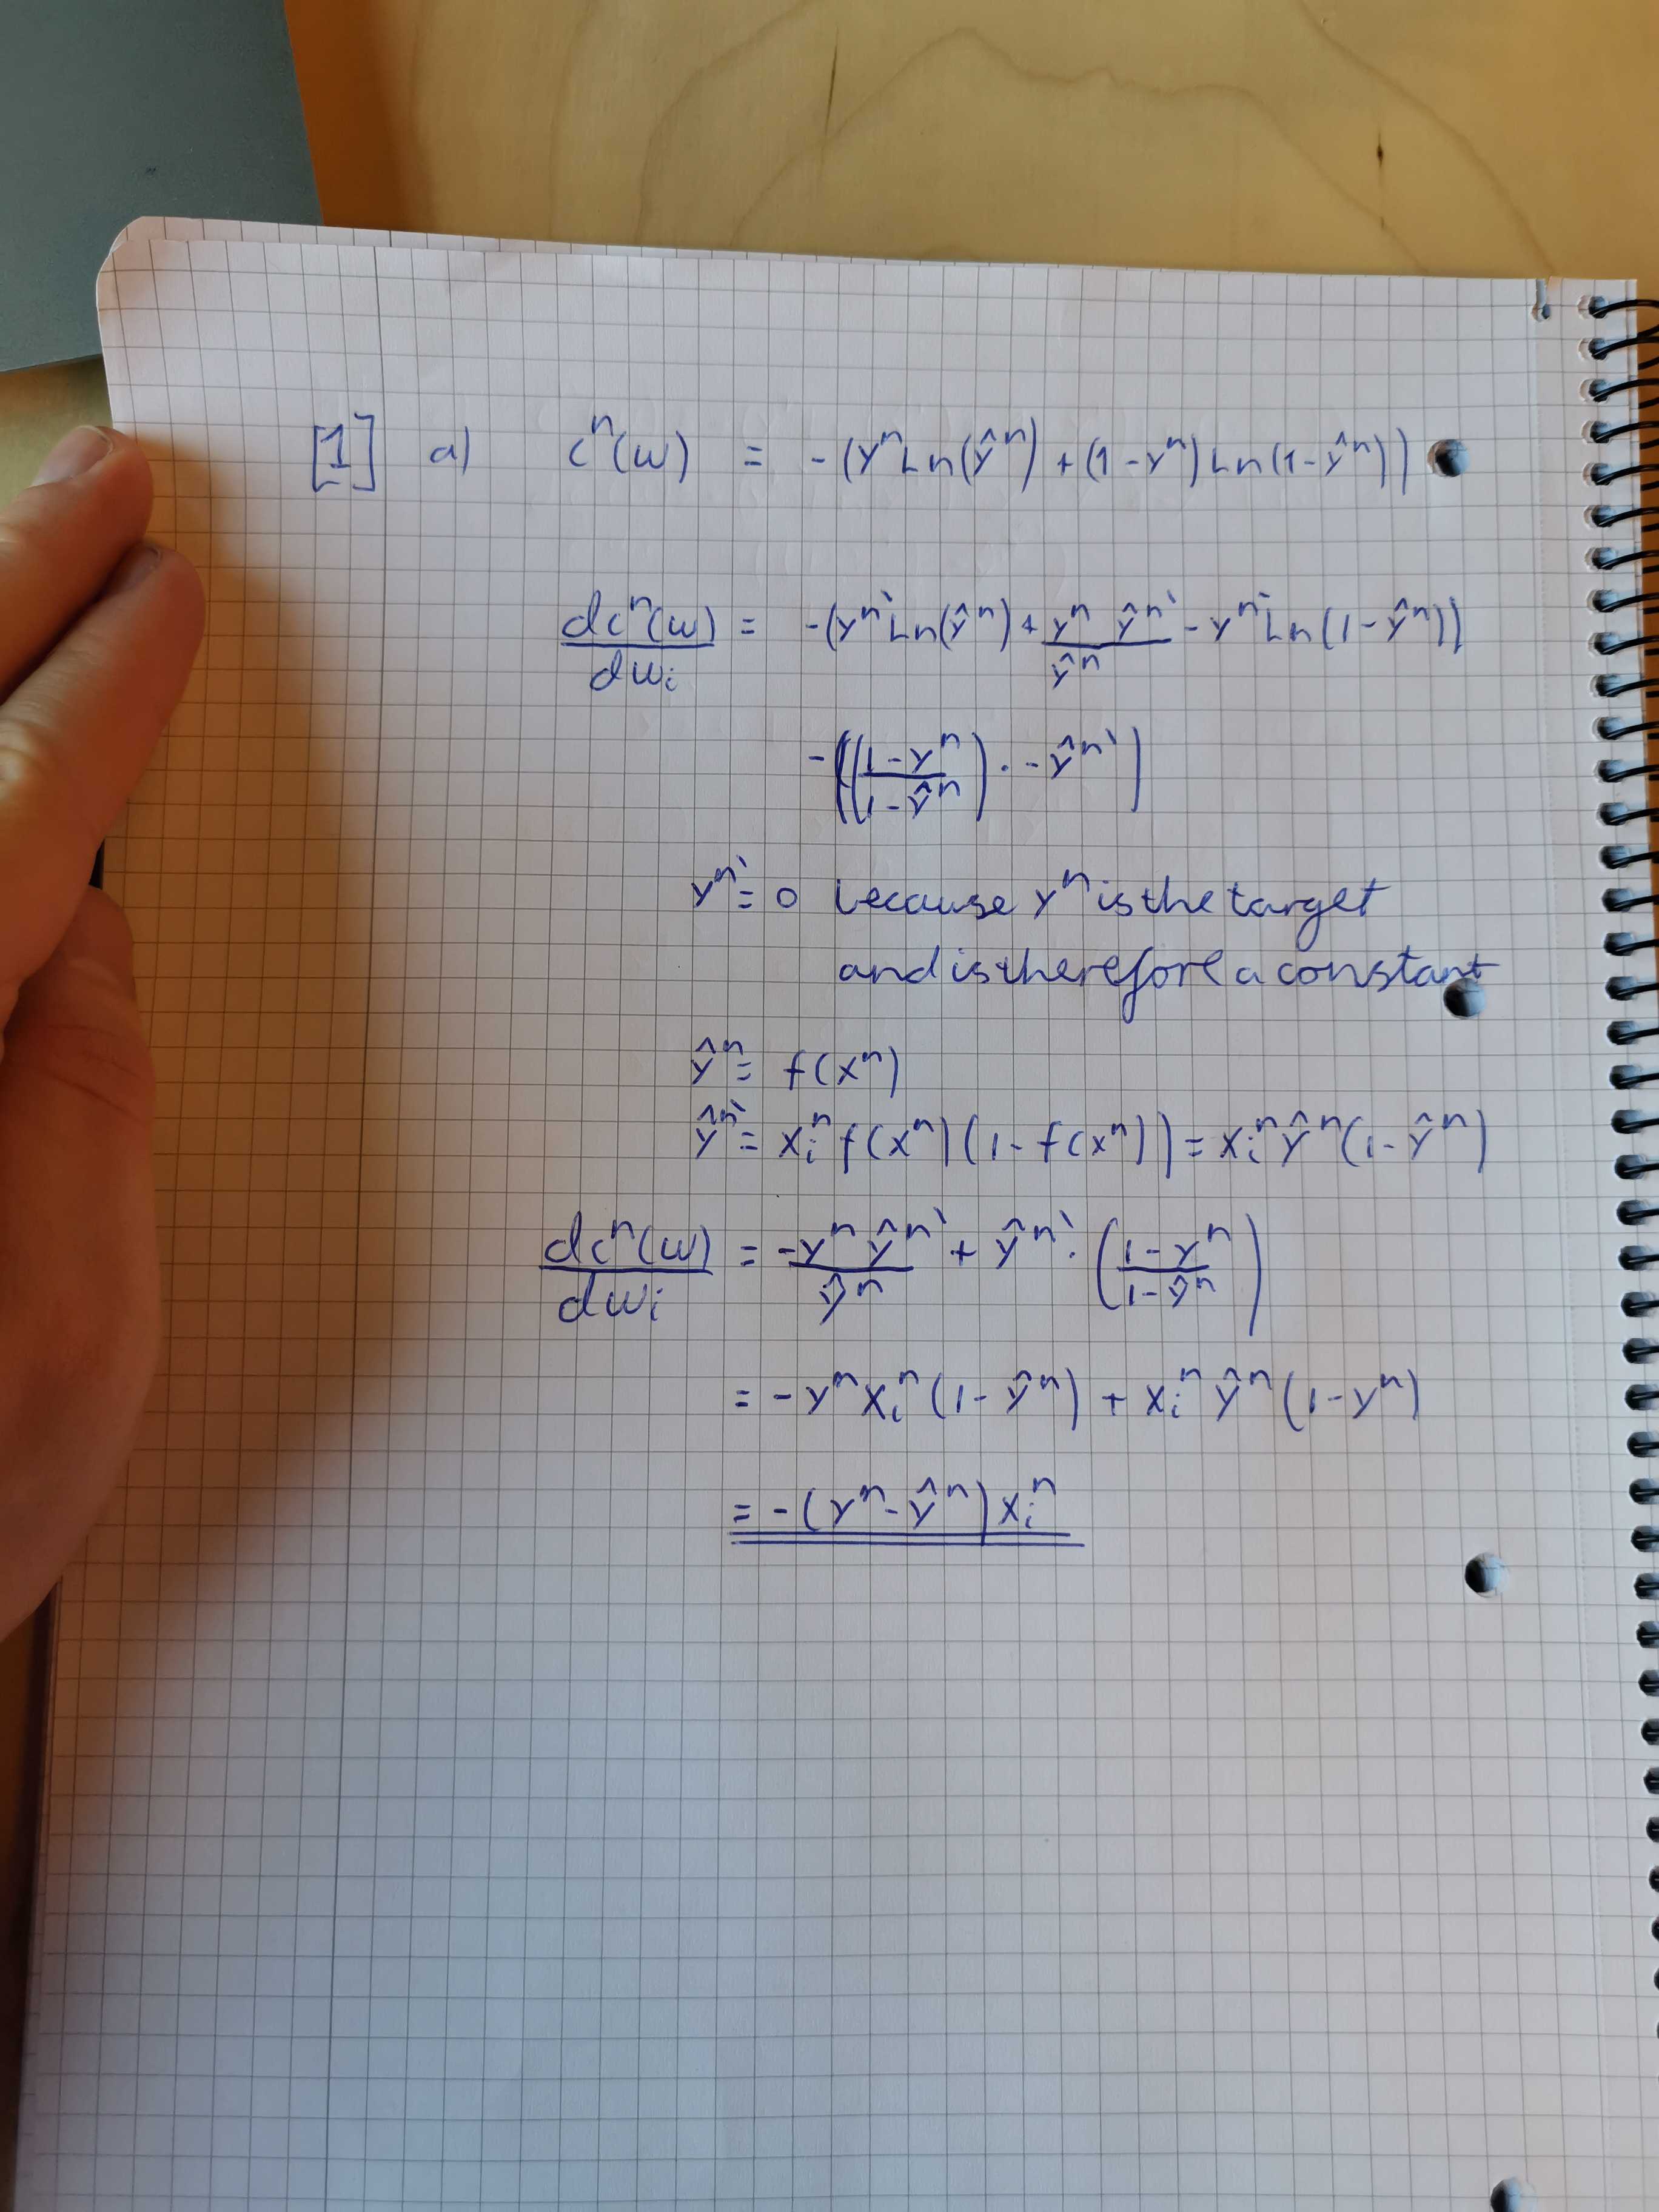 [1] a) cⁿ(w) = -(yⁿ Ln(ŷⁿ) + (1-yⁿ) Ln(1-ŷⁿ))
dcⁿ(w)/dwᵢ = -(yⁿ` Ln(ŷⁿ) + yⁿ ŷⁿ`/ŷⁿ - yⁿ` Ln(1-ŷⁿ))
-(((1-yⁿ)/(1-ŷⁿ)) · -ŷⁿ`)
yⁿ` = 0 because yⁿ is the target
and is therefore a constant
ŷⁿ = f(xⁿ)
ŷⁿ` = xᵢⁿ f(xⁿ)(1-f(xⁿ)) = xᵢⁿ ŷⁿ(1-ŷⁿ)
dcⁿ(w)/dwᵢ = -yⁿ ŷⁿ`/ŷⁿ + ŷⁿ` · ((1-yⁿ)/(1-ŷⁿ))
= -yⁿ xᵢⁿ(1-ŷⁿ) + xᵢⁿ ŷⁿ(1-yⁿ)
= -(yⁿ-ŷⁿ)xᵢⁿ